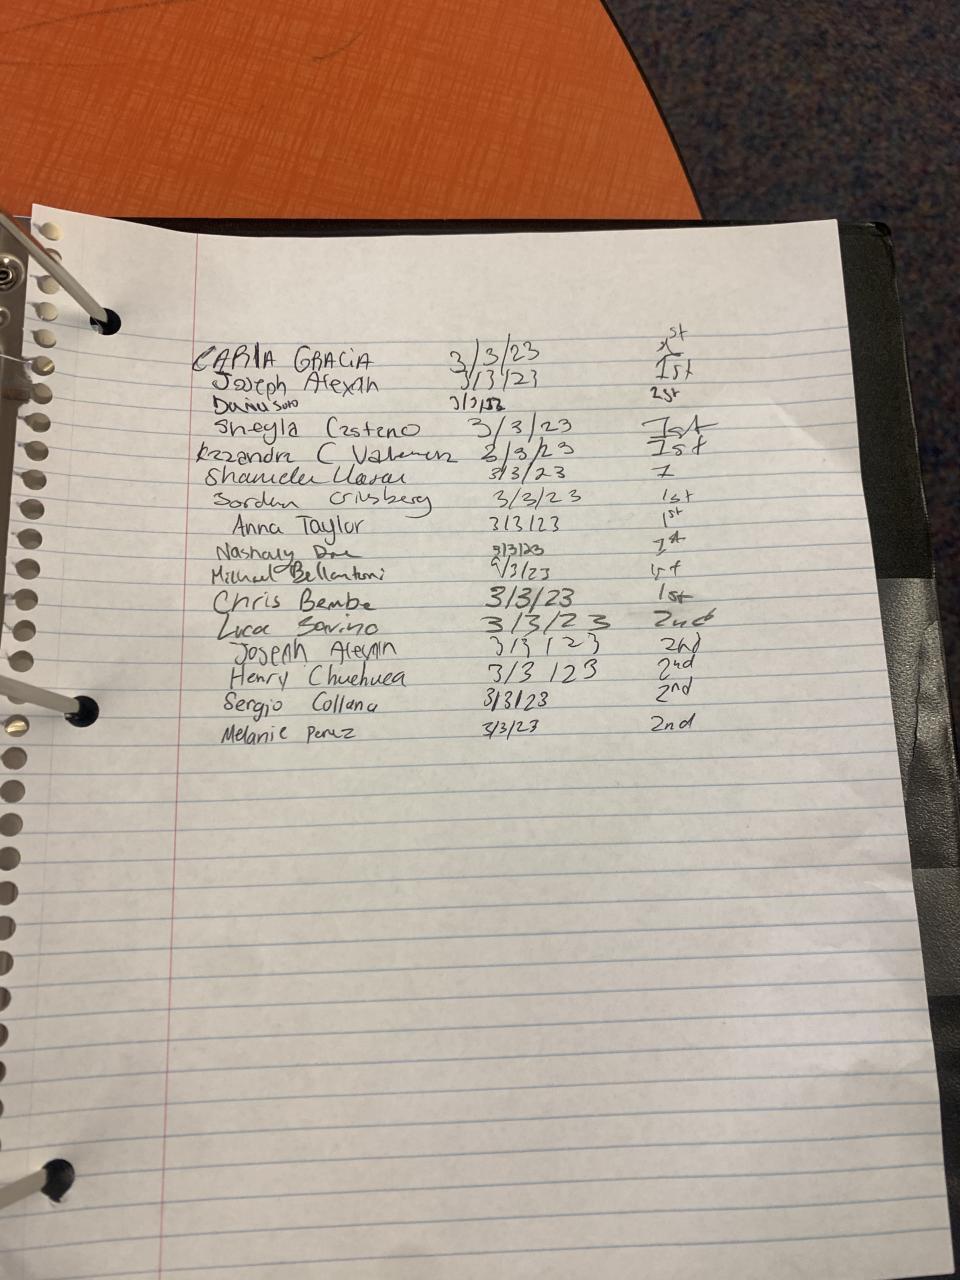 CARlA GRACIA 3/3/23 1st
Joseph Alexan 3/3/23 1st
3/3/23
Sheyla Casteno 3/3/23 1st
Kazandra C 3/3/23 1st
3/3/23 1
Jordan 3/3/23 1st
Anna Taylor 3/3/23 1st
Nashaly 3/3/23
Michael Bellantoni 3/3/23 1st
Chris Bembe 3/3/23 1st
Luca Savino 3/3/23 2nd
Joseph Alexan 3/3/23 2nd
Henry Chuehuea 3/3/23 2nd
Sergio Collana 3/3/23 2nd
Melanie Perez 3/3/23 2nd